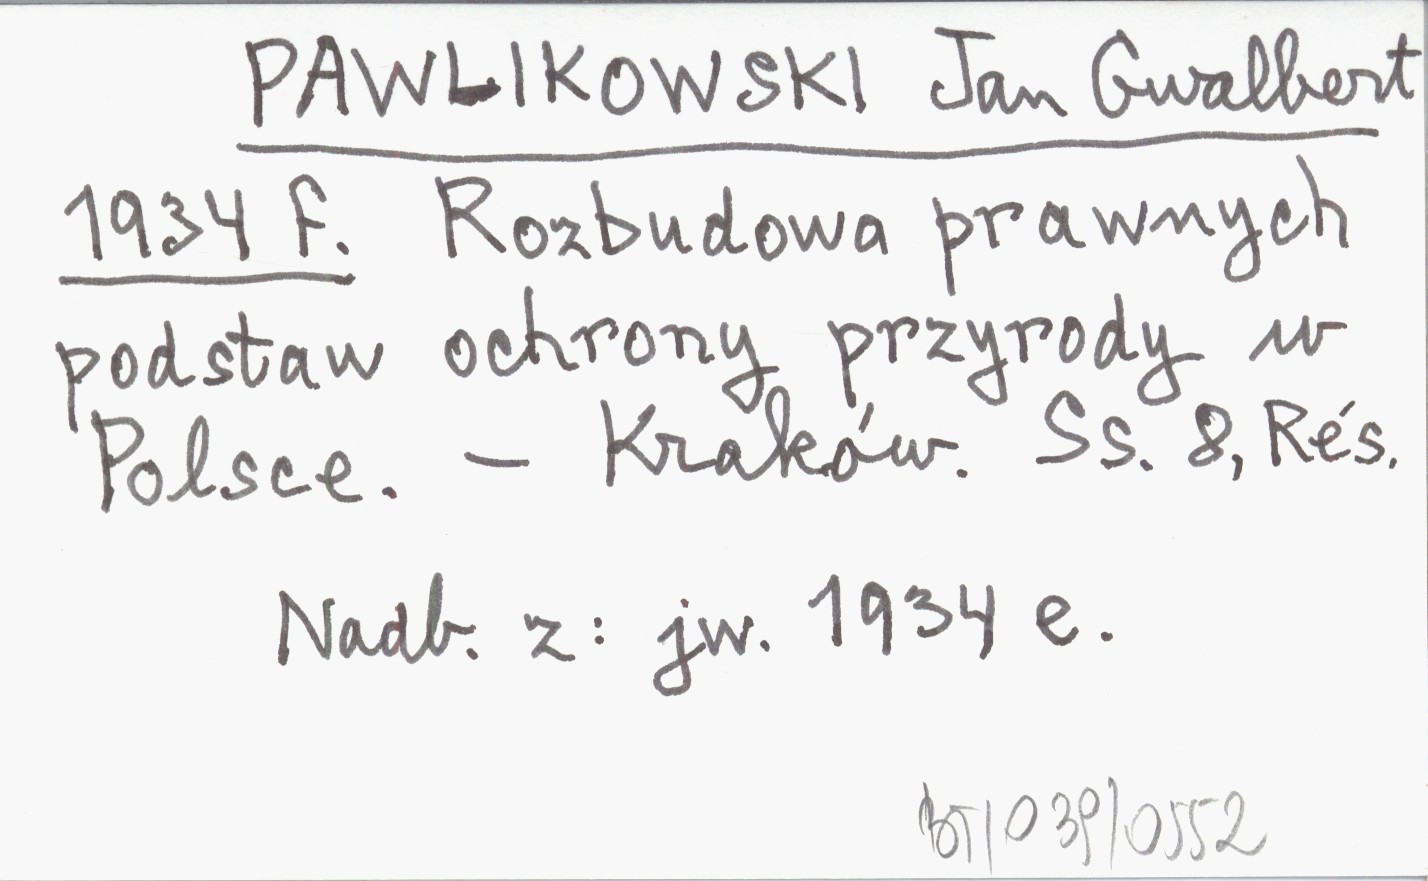 PAWLIKOWSKI Jan Gwalbert
1934 f. Rozbudowa prawnych
podstaw ochrony przyrody w
Polsce. – Kraków. Ss. 8, Rés.
Nadb. z: jw. 1934 e.
BT/039/0552